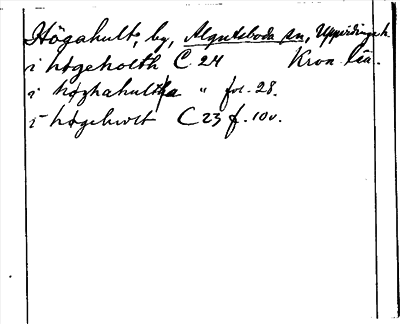 Högahult, by, Algutsboda sn, Uppvidinge h.
i høgeholth C 24 Kron. län.
i høghahult " fol. 28.
i høgehult C 23 f. 10v.